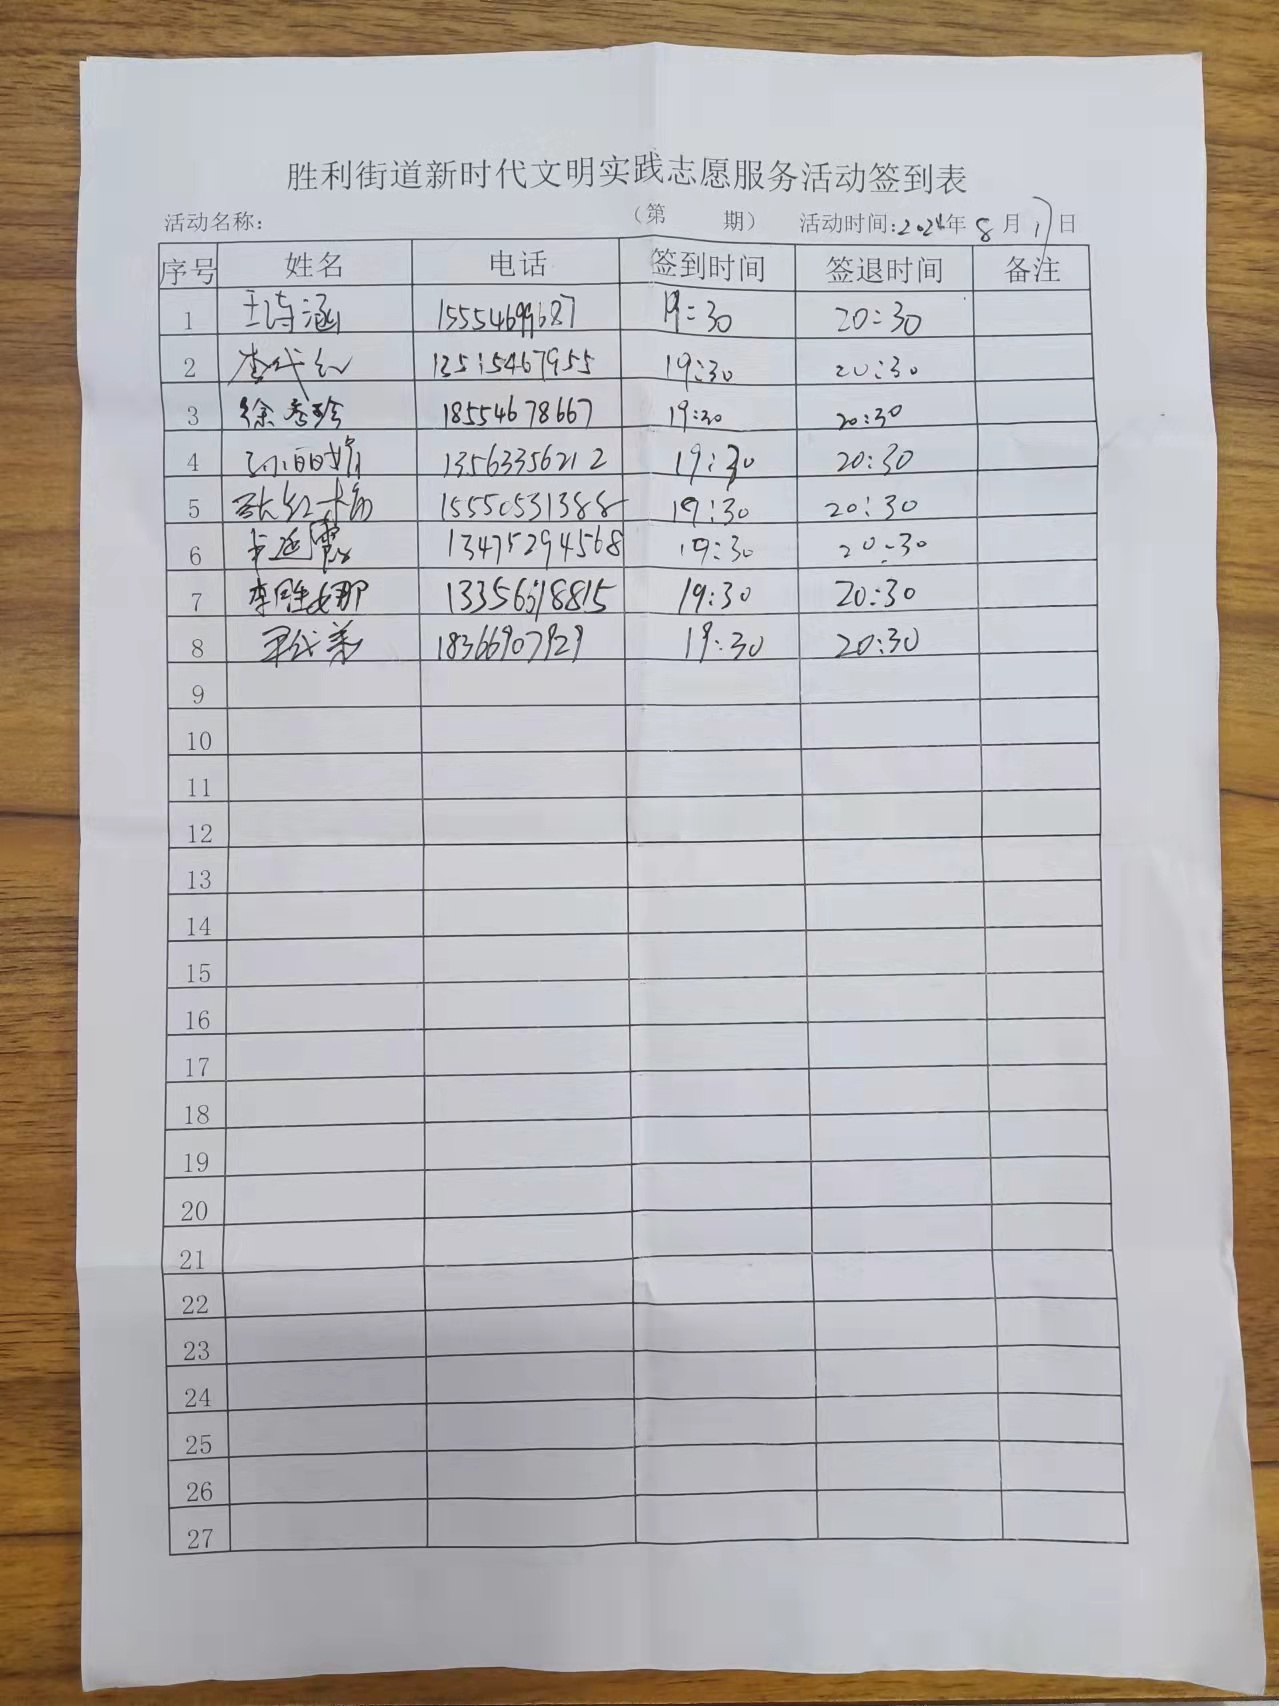 胜利街道新时代文明实践志愿服务活动签到表
活动名称: （第 期） 活动时间:2024年8月17日
序号 姓名 电话 签到时间 签退时间 备注
1 王诗涵 15554699687 19:30 20:30
2 李代红 13515467955 19:30 20:30
3 徐秀珍 18554678667 19:30 20:30
4 13563356212 19:30 20:30
5 15550531388 19:30 20:30
6 13475294568 19:30 20:30
7 13356618815 19:30 20:30
8 18366907929 19:30 20:30
9
10
11
12
13
14
15
16
17
18
19
20
21
22
23
24
25
26
27